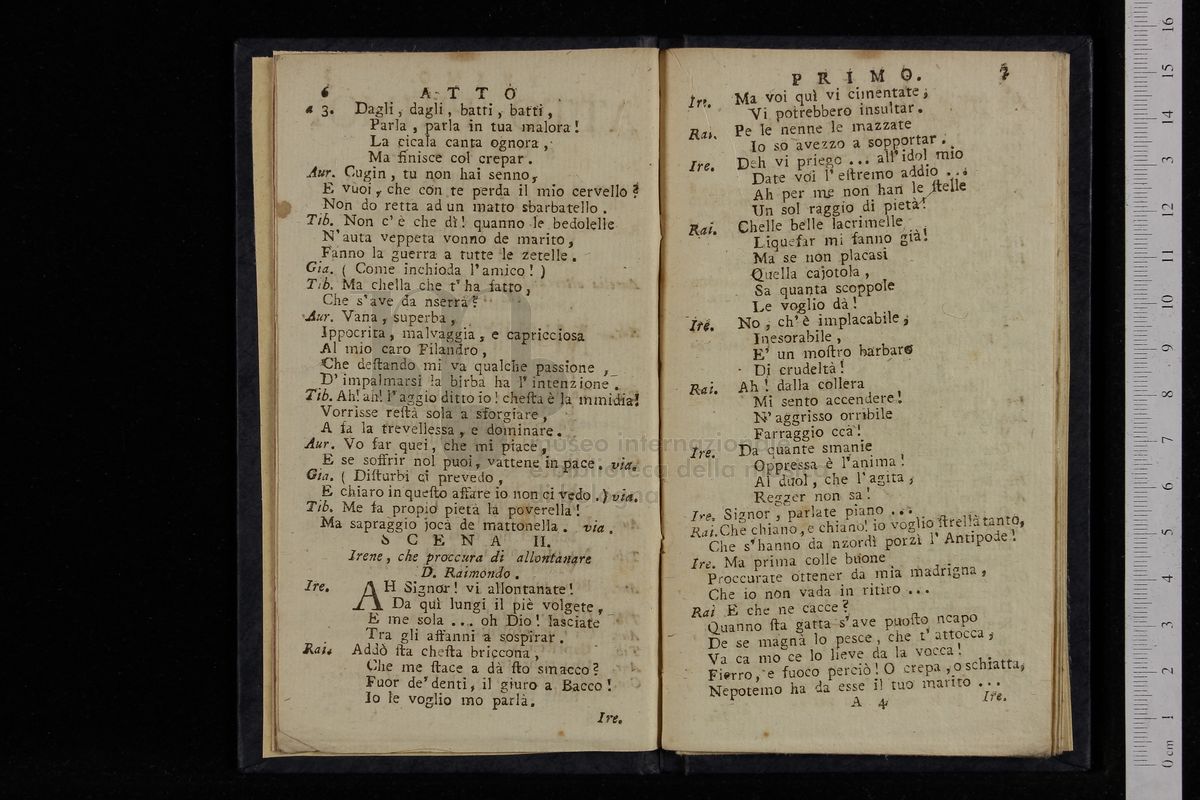 6 A T T O
a 3. Dagli, dagli, batti, batti,
Parla, parla in tua malora!
La cicala canta ognora,
Ma finisce col crepar.
Aur. Cugin, tu non hai senno,
E vuoi, che con te perda il mio cervello?
Non do retta ad un matto sbarbatello.
Tib. Non c'è che dì! quanno le bedolelle
N'auta veppeta vonno de marito,
Fanno la guerra a tutte le zetelle.
Gia. ( Come inchioda l'amico! )
Tib. Ma chella che t'ha fatto,
Che s'ave da nserrà?
Aur. Vana, superba,
Ippocrita, malvaggia, e capricciosa
Al mio caro Filandro,
Che destando mi va qualche passione,
D'impalmarsi la birba ha l'intenzione.
Tib. Ah! ah! l'aggio ditto io! chesta è la mmidia!
Vorrisse restà sola a sforgiare,
A fa la trevellessa, e dominare.
Aur. Vo far quei, che mi piace,
E se soffrir nol puoi, vattene in pace. via.
Gia. ( Disturbi ci prevedo,
E chiaro in questo affare io non ci vedo. ) via.
Tib. Me fa propio pietà la poverella!
Ma sapraggio jocà de mattonella. via.
S C E N A II.
Irene, che proccura di allontanare
D. Raimondo.
Ire. AH Signor! vi allontanate!
Da quì lungi il piè volgete,
E me sola ... oh Dio! lasciate
Tra gli affanni a sospirar.
Rai. Addò sta chesta briccona,
Che me stace a dà sto smacco?
Fuor de'denti, il giuro a Bacco!
Io le voglio mo parlà.
Ire.
P R I M O. 7
Ire. Ma voi quì vi cimentate;
Vi potrebbero insultar.
Rai. Pe le nenne le mazzate
Io so avezzo a sopportar.
Ire. Deh vi priego ... all'idol mio
Date voi l'estremo addio ...
Ah per me non han le stelle
Un sol raggio di pietà!
Rai. Chelle belle lacrimelle
Liquefar mi fanno già!
Ma se non placasi
Quella cajotola,
Sa quanta scoppole
Le voglio dà!
Ire. No, ch'è implacabile,
Inesorabile,
E' un mostro barbaro
Di crudeltà!
Rai. Ah! dalla collera
Mi sento accendere!
N'aggrisso orribile
Farraggio ccà!
Ire. Da quante smanie
Oppressa è l'anima!
Al duol, che l'agita,
Regger non sa!
Ire. Signor, parlate piano ...
Rai. Che chiano, e chiano! io voglio strellà tanto,
Che s'hanno da nzordì porzì l'Antipode!
Ire. Ma prima colle buone
Proccurate ottener da mia madrigna,
Che io non vada in ritiro ...
Rai E che ne cacce?
Quanno sta gatta s'ave puosto ncapo
De se magnà lo pesce, che t'attocca,
Va ca mo ce lo lieve da la vocca!
Fierro, e fuoco perciò! O crepa, o schiatta,
Nepotemo ha da esse il tuo marito ...
A 4 Ire.
museo internazionale
e biblioteca della musica
di bologna
0 cm 1 2 3 4 5 6 7 8 9 10 11 12 13 14 15 16